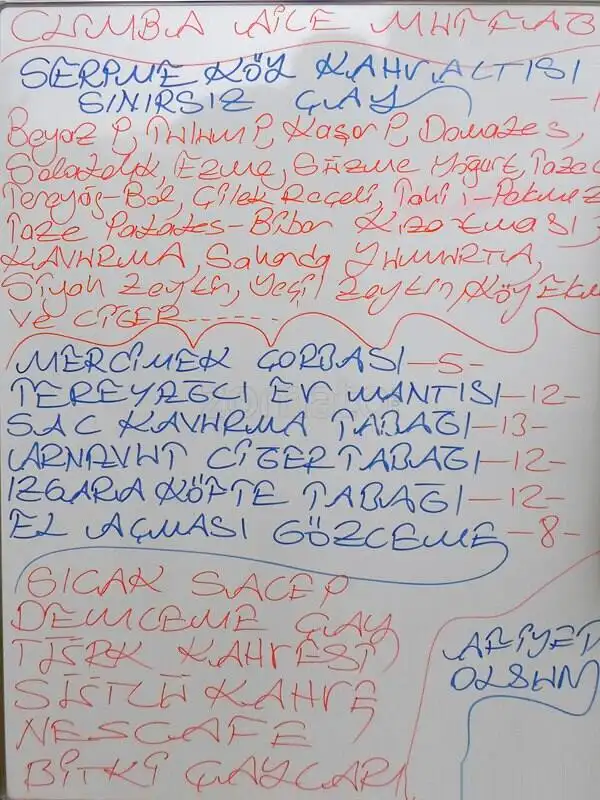 CUMBA AİLE MUTFAĞ
SERPME KÖY KAHVALTISI
SINIRSIZ ÇAY
Beyaz P, Tulum P, Kaşar P, Domates,
Salatalık, Ezme, Süzme Yoğurt, Taze
Tereyağ-Bal, Çilek Reçeli, Tahin-Pekmez
Taze Patates-Biber Kızartması,
KAVURMA, Sahanda YUMURTA,
Siyah Zeytin, Yeşil Zeytin, KÖY Ekm
ve CİĞER
MERCİMEK ÇORBASI-5-
TEREYAĞLI EV MANTISI-12-
SAC KAVURMA TABAĞI-13-
ARNAVUT CİĞER TABAĞI-12-
IZGARA KÖFTE TABAĞI-12-
EL AÇMASI GÖZLEME-8-
SICAK SALEP
DEMLEME ÇAY
TÜRK KAHVESİ
SÜTLÜ KAHVE
NESCAFE
BİTKİ ÇAYLARI
AFİYET
OLSUN